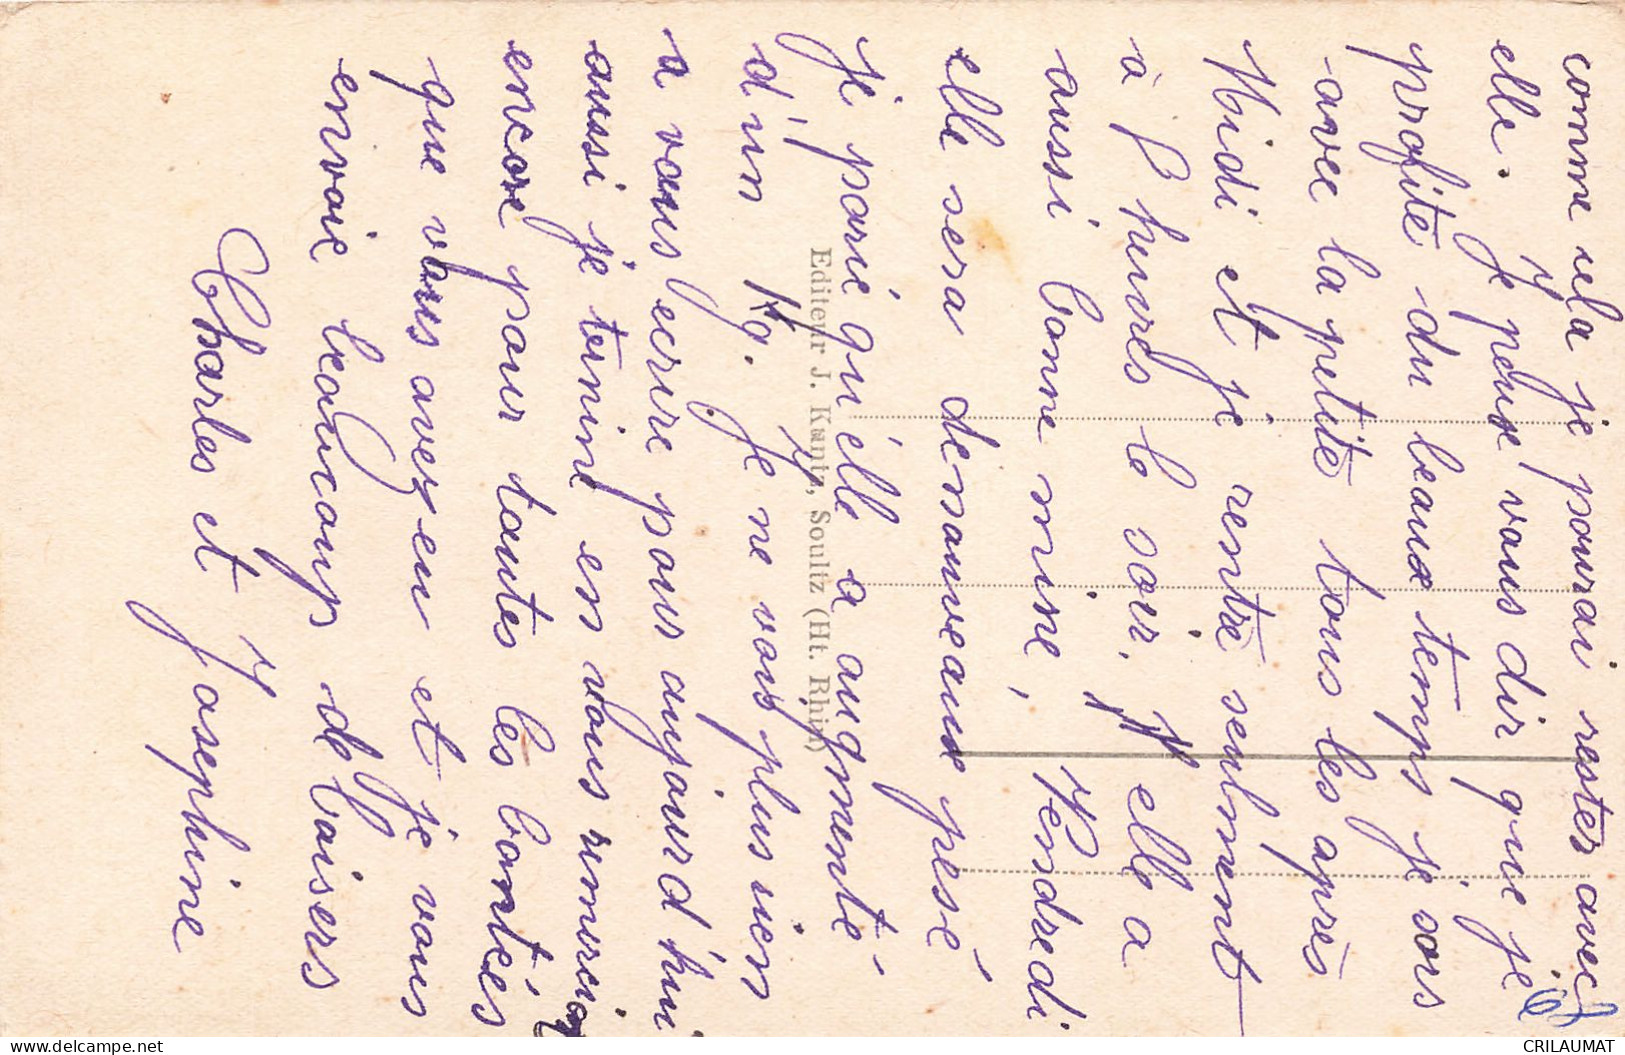 comme cela je pourai rester avec
elle. Je peux vous dir que je
profite du beaux temps je sors
avec la petite tous les après
Midi et je rentre seulment
à 8 heures le soir. elle a
aussi bonne mine, Vendredi
elle sera denouveaux pesé
je parie qu'éllé a augmenté
d'un Kg. Je ne vois plus rien
a vous ecrire pour aujourd'hui
aussi je termine en vous remerciant
encore pour toutes les bontées
que vous avez eu et je vous
envoie beaucoup de baisers
Charles et Josephine
Editeur J. Kuntz, Soultz (Ht. Rhin)
CRILAUMAT